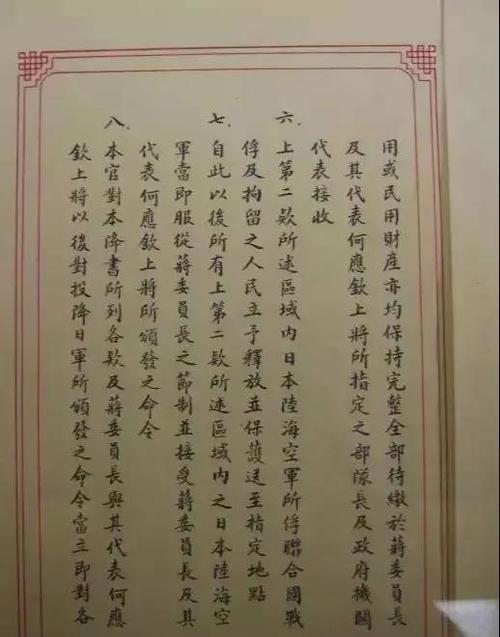 用或民用財產亦均保持完整全部待繳於蔣委員長
及其代表何應欽上將所指定之部隊長及政府機關
代表接收
六、上第二欵所述區域內日本陸海空軍所俘聯合國戰
俘及拘留之人民立予釋放並保護送至指定地點
七、自此以後所有上第二欵所述區域內之日本陸海空
軍當即服從蔣委員長之節制並接受蔣委員長及其
代表何應欽上將所頒發之命令
八、本官對本降書所列各欵及蔣委員長與其代表何應
欽上將以後對投降日軍所頒發之命令當立即對各